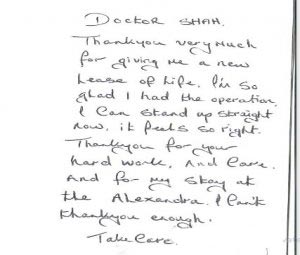 DOCKOR SHAH.
Thankyou very much
for giving me a new
Lease of Life. I'm so
glad I had the operation.
I Can stand up straight
now, it feels so right.
Thankyou for your
hard work, And Care.
And for my stay at
the Alexandra. I Can't
thankyou enough.
Take Care.